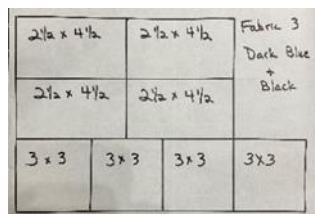 2½ x 4½
2½ x 4½
Fabric 3
Dark Blue
+
Black
2½ x 4½
2½ x 4½
3 x 3
3 x 3
3 x 3
3x3